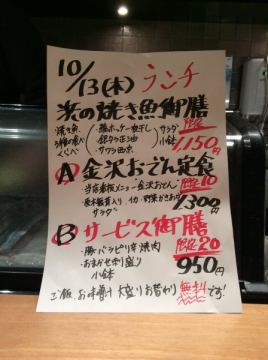 10/13(木) ランチ
浜の焼き魚御膳
・焼き魚 3種の食べくらべ
・縞ホッケ一夜干し
・銀ダラ正油
・サワラ西京
サラダ
小鉢
限定
1,150円
A 金沢おでん定食
限定10
・当店看板メニュー"金沢おでん"
1300円
サラダ
B サービス御膳
限定20
・豚バラピリ辛焼肉
・おまかせ串り盛り
小鉢
950円
ご飯、お味噌汁 大盛りお替わり無料です!